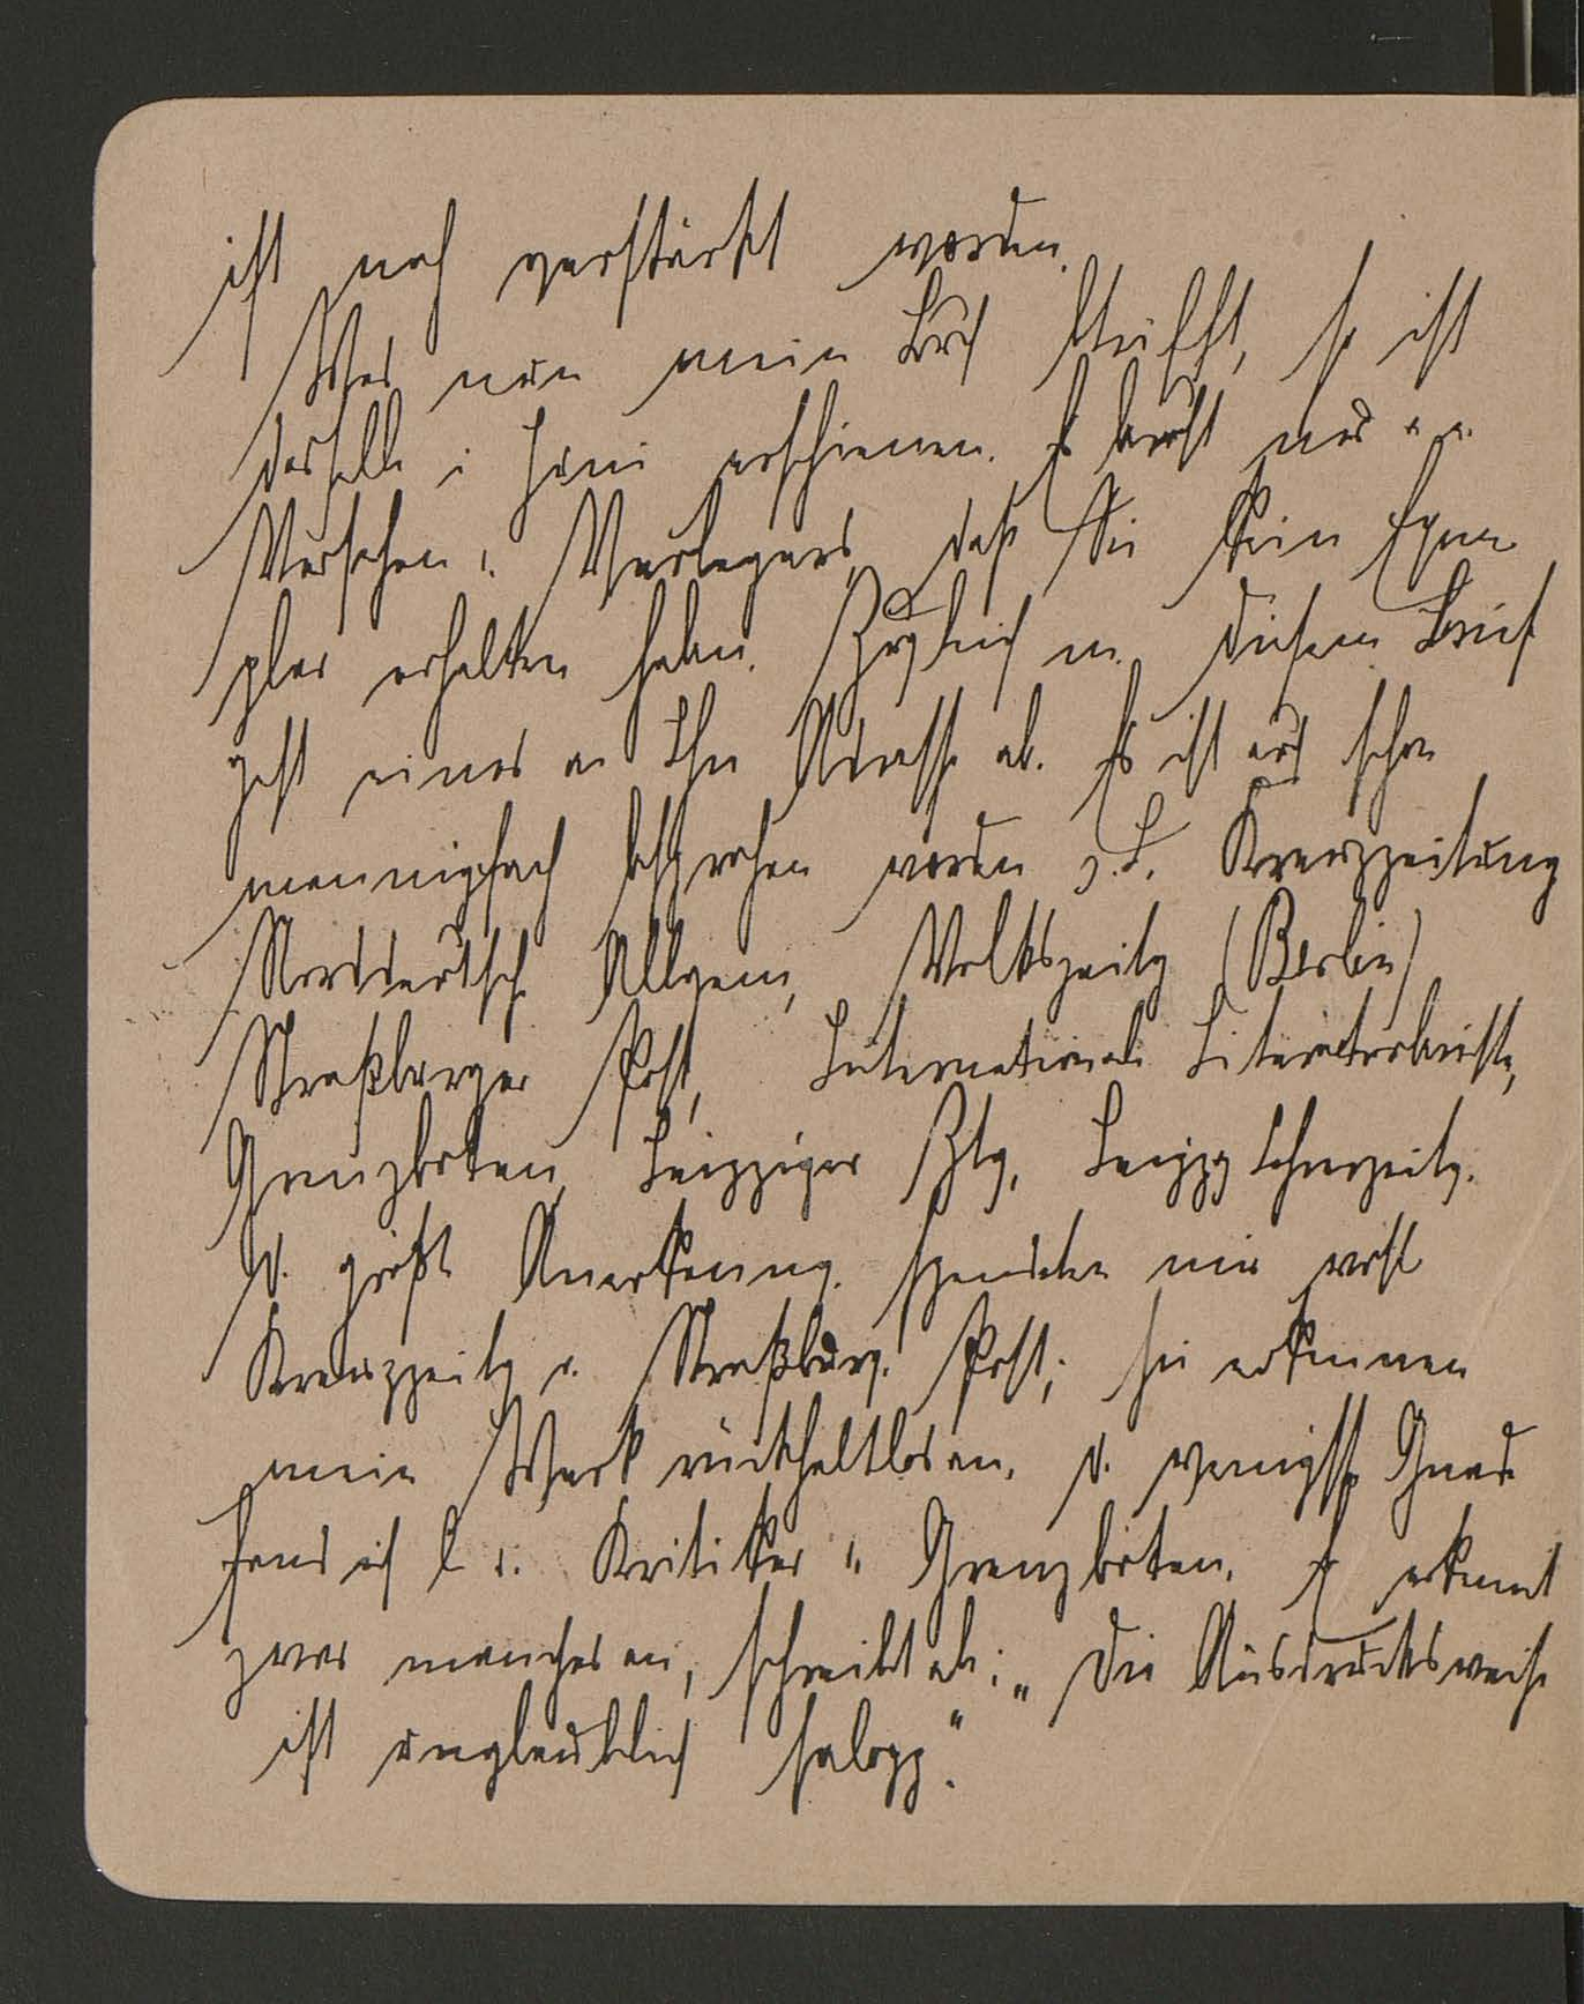 ist noch verstärkt worden.
Was nun mein Buch betrifft, so ist
dasselbe i. Juni erschienen. Es beruht nur a. e.
Versehen d. Verlegers, daß Sie kein Exem
plar erhalten haben. Zugleich m. diesem Brief
geht eines an Ihre Adresse ab. Es ist auch schon
mannigfach besprochen worden z. B. Kreuzzeitung
Norddeutsche Allgem., Volkszeitg (Berlin)
Straßburger Post, Internationale Literaturberichte,
Grenzboten, Leipziger Ztg, Leipzg Lehrerzeitg.
D. größte Anerkennung. spendeten mir wohl
Kreuzzeitg u. Straßburg. Post; sie erkennen
mein Werk rückhaltlos an. D. wenigste Gnade
fand ich b. d. Kritiker d. Grenzboten. Er erkennt
zwar manches an, schreibt ab.: „Die Ausdrucksweise
ist unglaublich salopp."